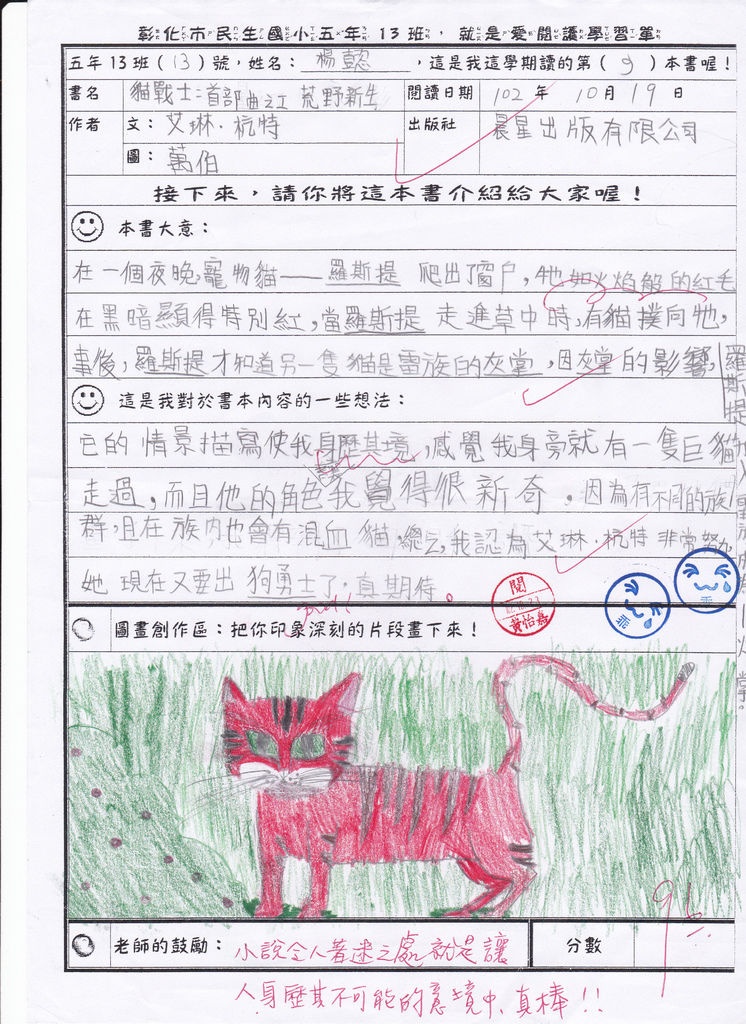 彰化市民生國小五年13班，就是愛閱讀學習單
五年13班(13)號，姓名：楊懿，這是我這學期讀的第(9)本書喔！
書名 貓戰士:首部曲之I 荒野新生 閱讀日期 102年10月19日
作者 文：艾琳·杭特 出版社 晨星出版有限公司
圖：萬伯
接下來，請你將這本書介紹給大家喔！
本書大意：
在一個夜晚,寵物貓——羅斯提 爬出了窗戶,牠如火焰般的紅毛
在黑暗顯得特別紅,當羅斯提走進草中時,有貓撲向牠,
事後,羅斯提才知道另一隻貓是雷族的灰掌,因灰掌的影響,
羅斯提
這是我對於書本內容的一些想法：
它的情景描寫使我身歷其境,感覺我身旁就有一隻巨貓
走過,而且他的角色我覺得很新奇,因為有不同的族
群,且在族內也會有混血貓,總之,我認為艾琳·杭特非常努力,
她現在又要出狗勇士了,真期待。
閱
黃怡嘉
乖
乖
火掌。
圖畫創作區：把你印象深刻的片段畫下來！
老師的鼓勵：小說令人著迷之處就是讓 分數 95
人身歷其不可能的意境中,真棒!!